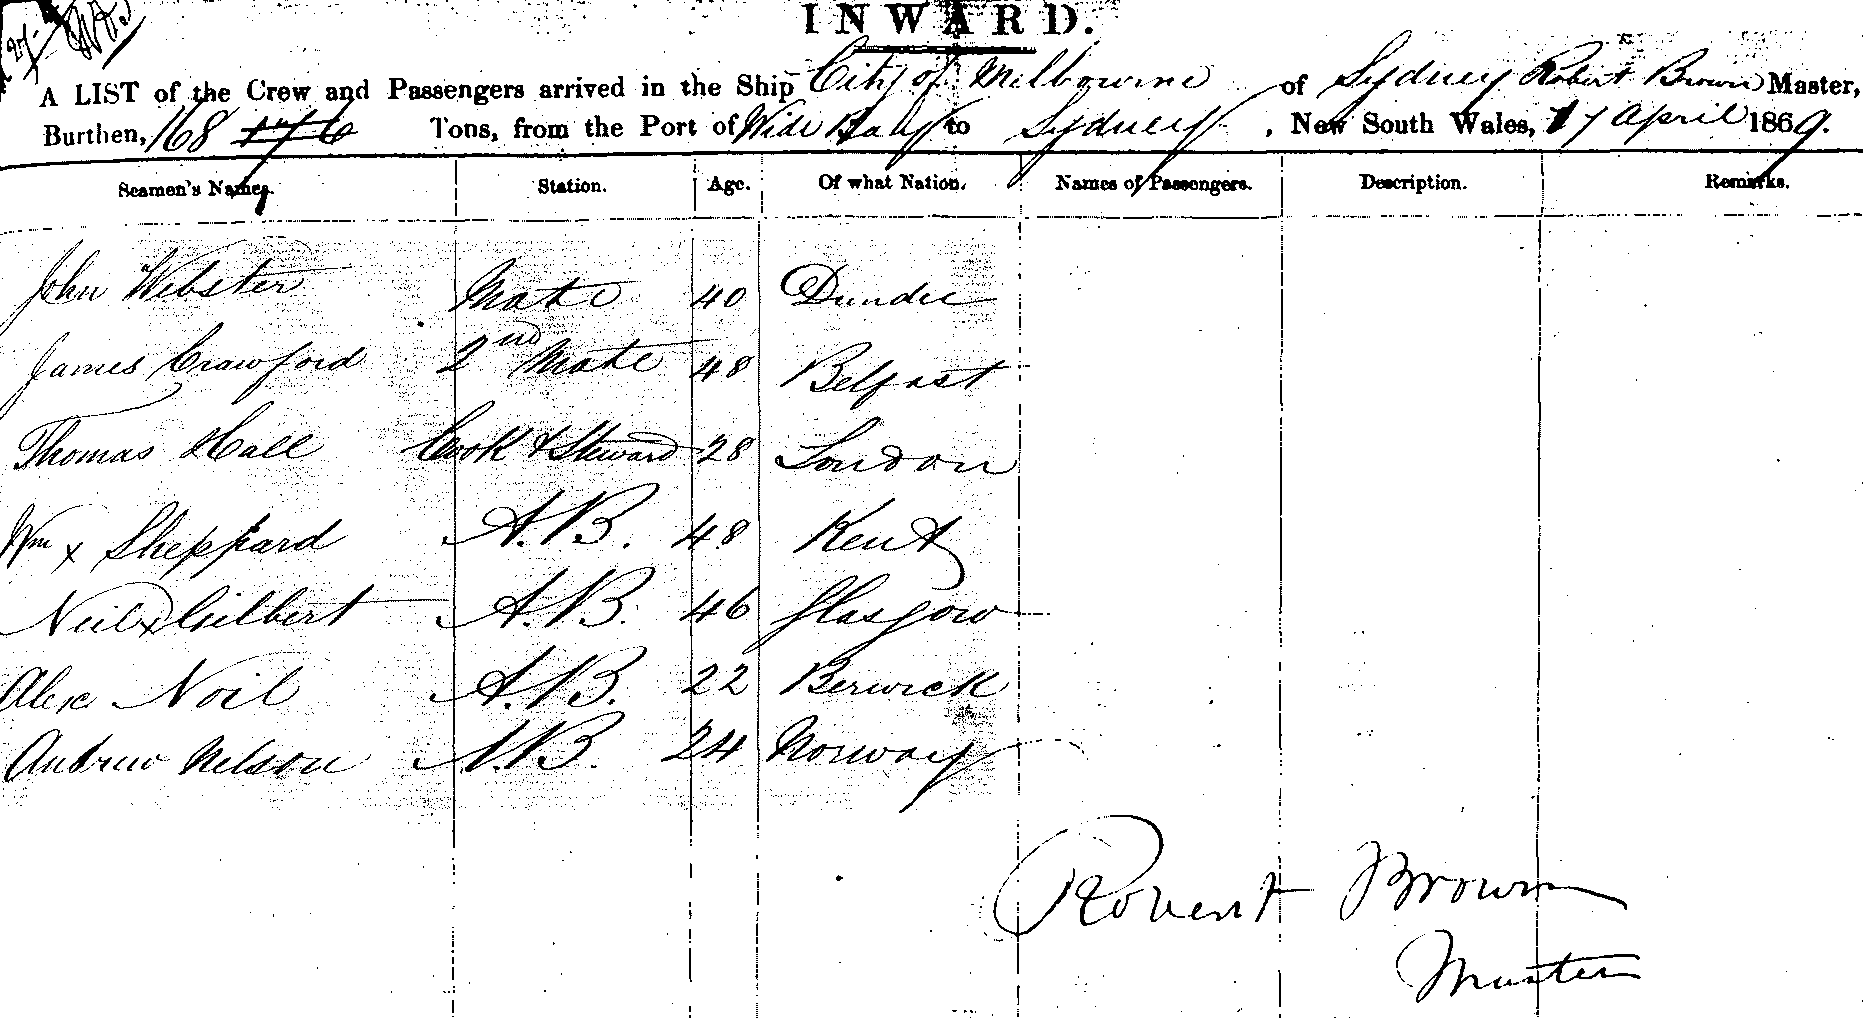 INWARD.
A LIST of the Crew and Passengers arrived in the Ship City of Melbourne of Sydney Robert Brown Master,
Burthen, 168 176 Tons, from the Port of Wide Bay to Sydney, New South Wales, 17 April 1869.
Seamen's Names. Station. Age. Of what Nation. Names of Passengers. Description. Remarks.
John Webster Mate 40 Dundee
James Crawford 2nd Mate 48 Belfast
Thomas Hall Cook & Steward 28 London
Wm x Sheppard A.B. 48 Kent
Neil x Gilbert A.B. 46 Glasgow
Alex Noil A.B. 22 Berwick
Andrew Nelson A.B. 24 Norway
Robert Brown
Master